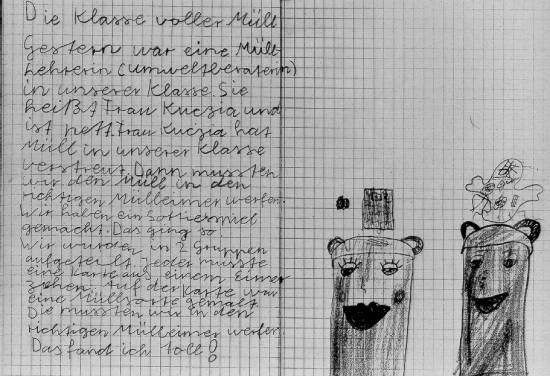 Die Klasse voller Müll
Gestern war eine Müll-
Lehrerin (umweltberaterin)
in unserer Klasse. Sie
heißt Frau Kuczia und
ist nett. Frau Kuczia hat
Müll in unserer Klasse
verstreut. Dann mussten
wir den Müll in den
richtigen Mülleimer werfen.
Wir haben ein Sortierspiel
gemacht. Das ging so:
Wir wurden in 2 Gruppen
aufgeteilt. Jeder musste
eine Karte aus einem Eimer
ziehen. Auf der Karte war
eine Müllsorte gemalt.
Die mussten wir in den
richtigen Mülleimer werfen.
Das fand ich toll!